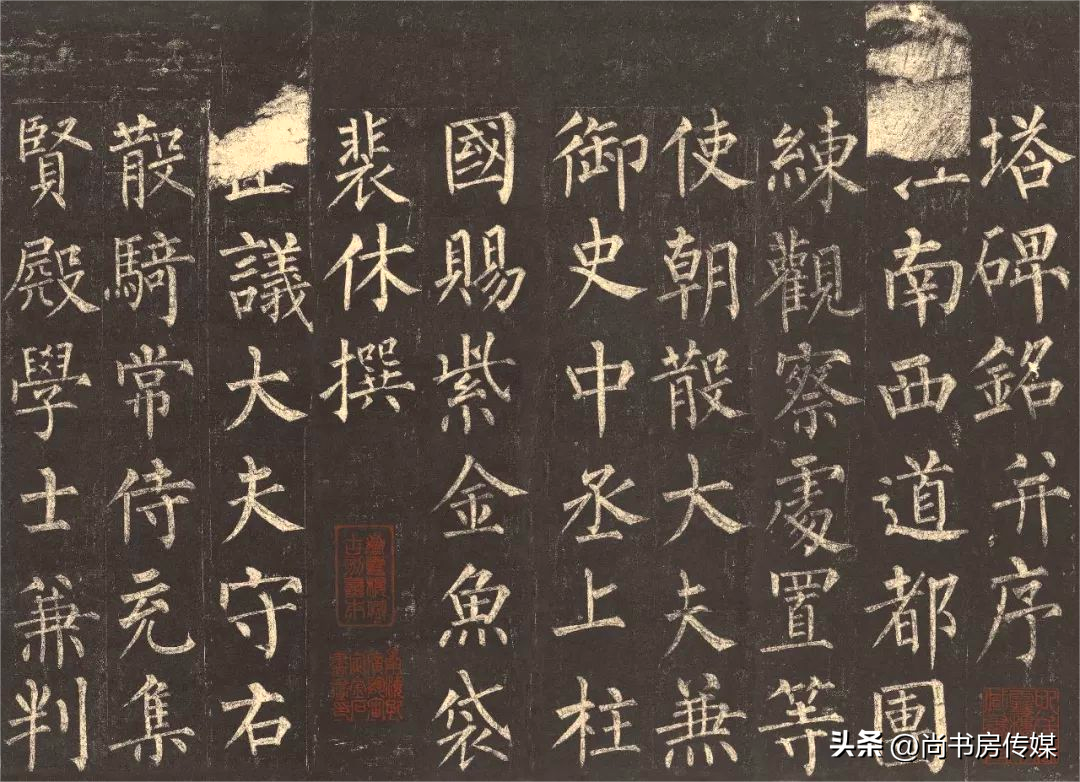 塔碑銘并序
南西道都團
練觀察處置等
使朝散大夫兼
御史中丞上柱
國賜紫金魚袋
裴休撰
議大夫守右
散騎常侍充集
賢殿學士兼判
头条 @尚书房传媒